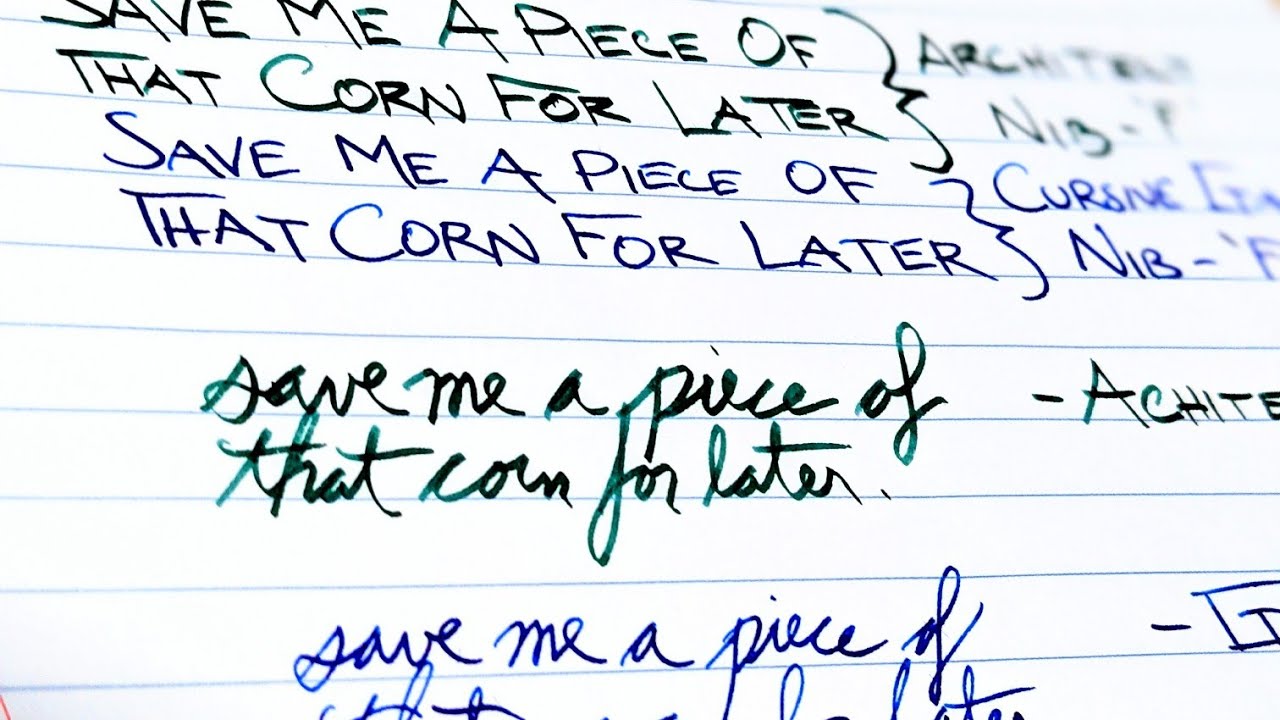 SAVE ME A PIECE OF } ARCHITECT
THAT CORN FOR LATER } NIB -
SAVE ME A PIECE OF } CURSIVE
THAT CORN FOR LATER } NIB - 'F
save me a piece of - ACHITE
that corn for later.
save me a piece of -
later